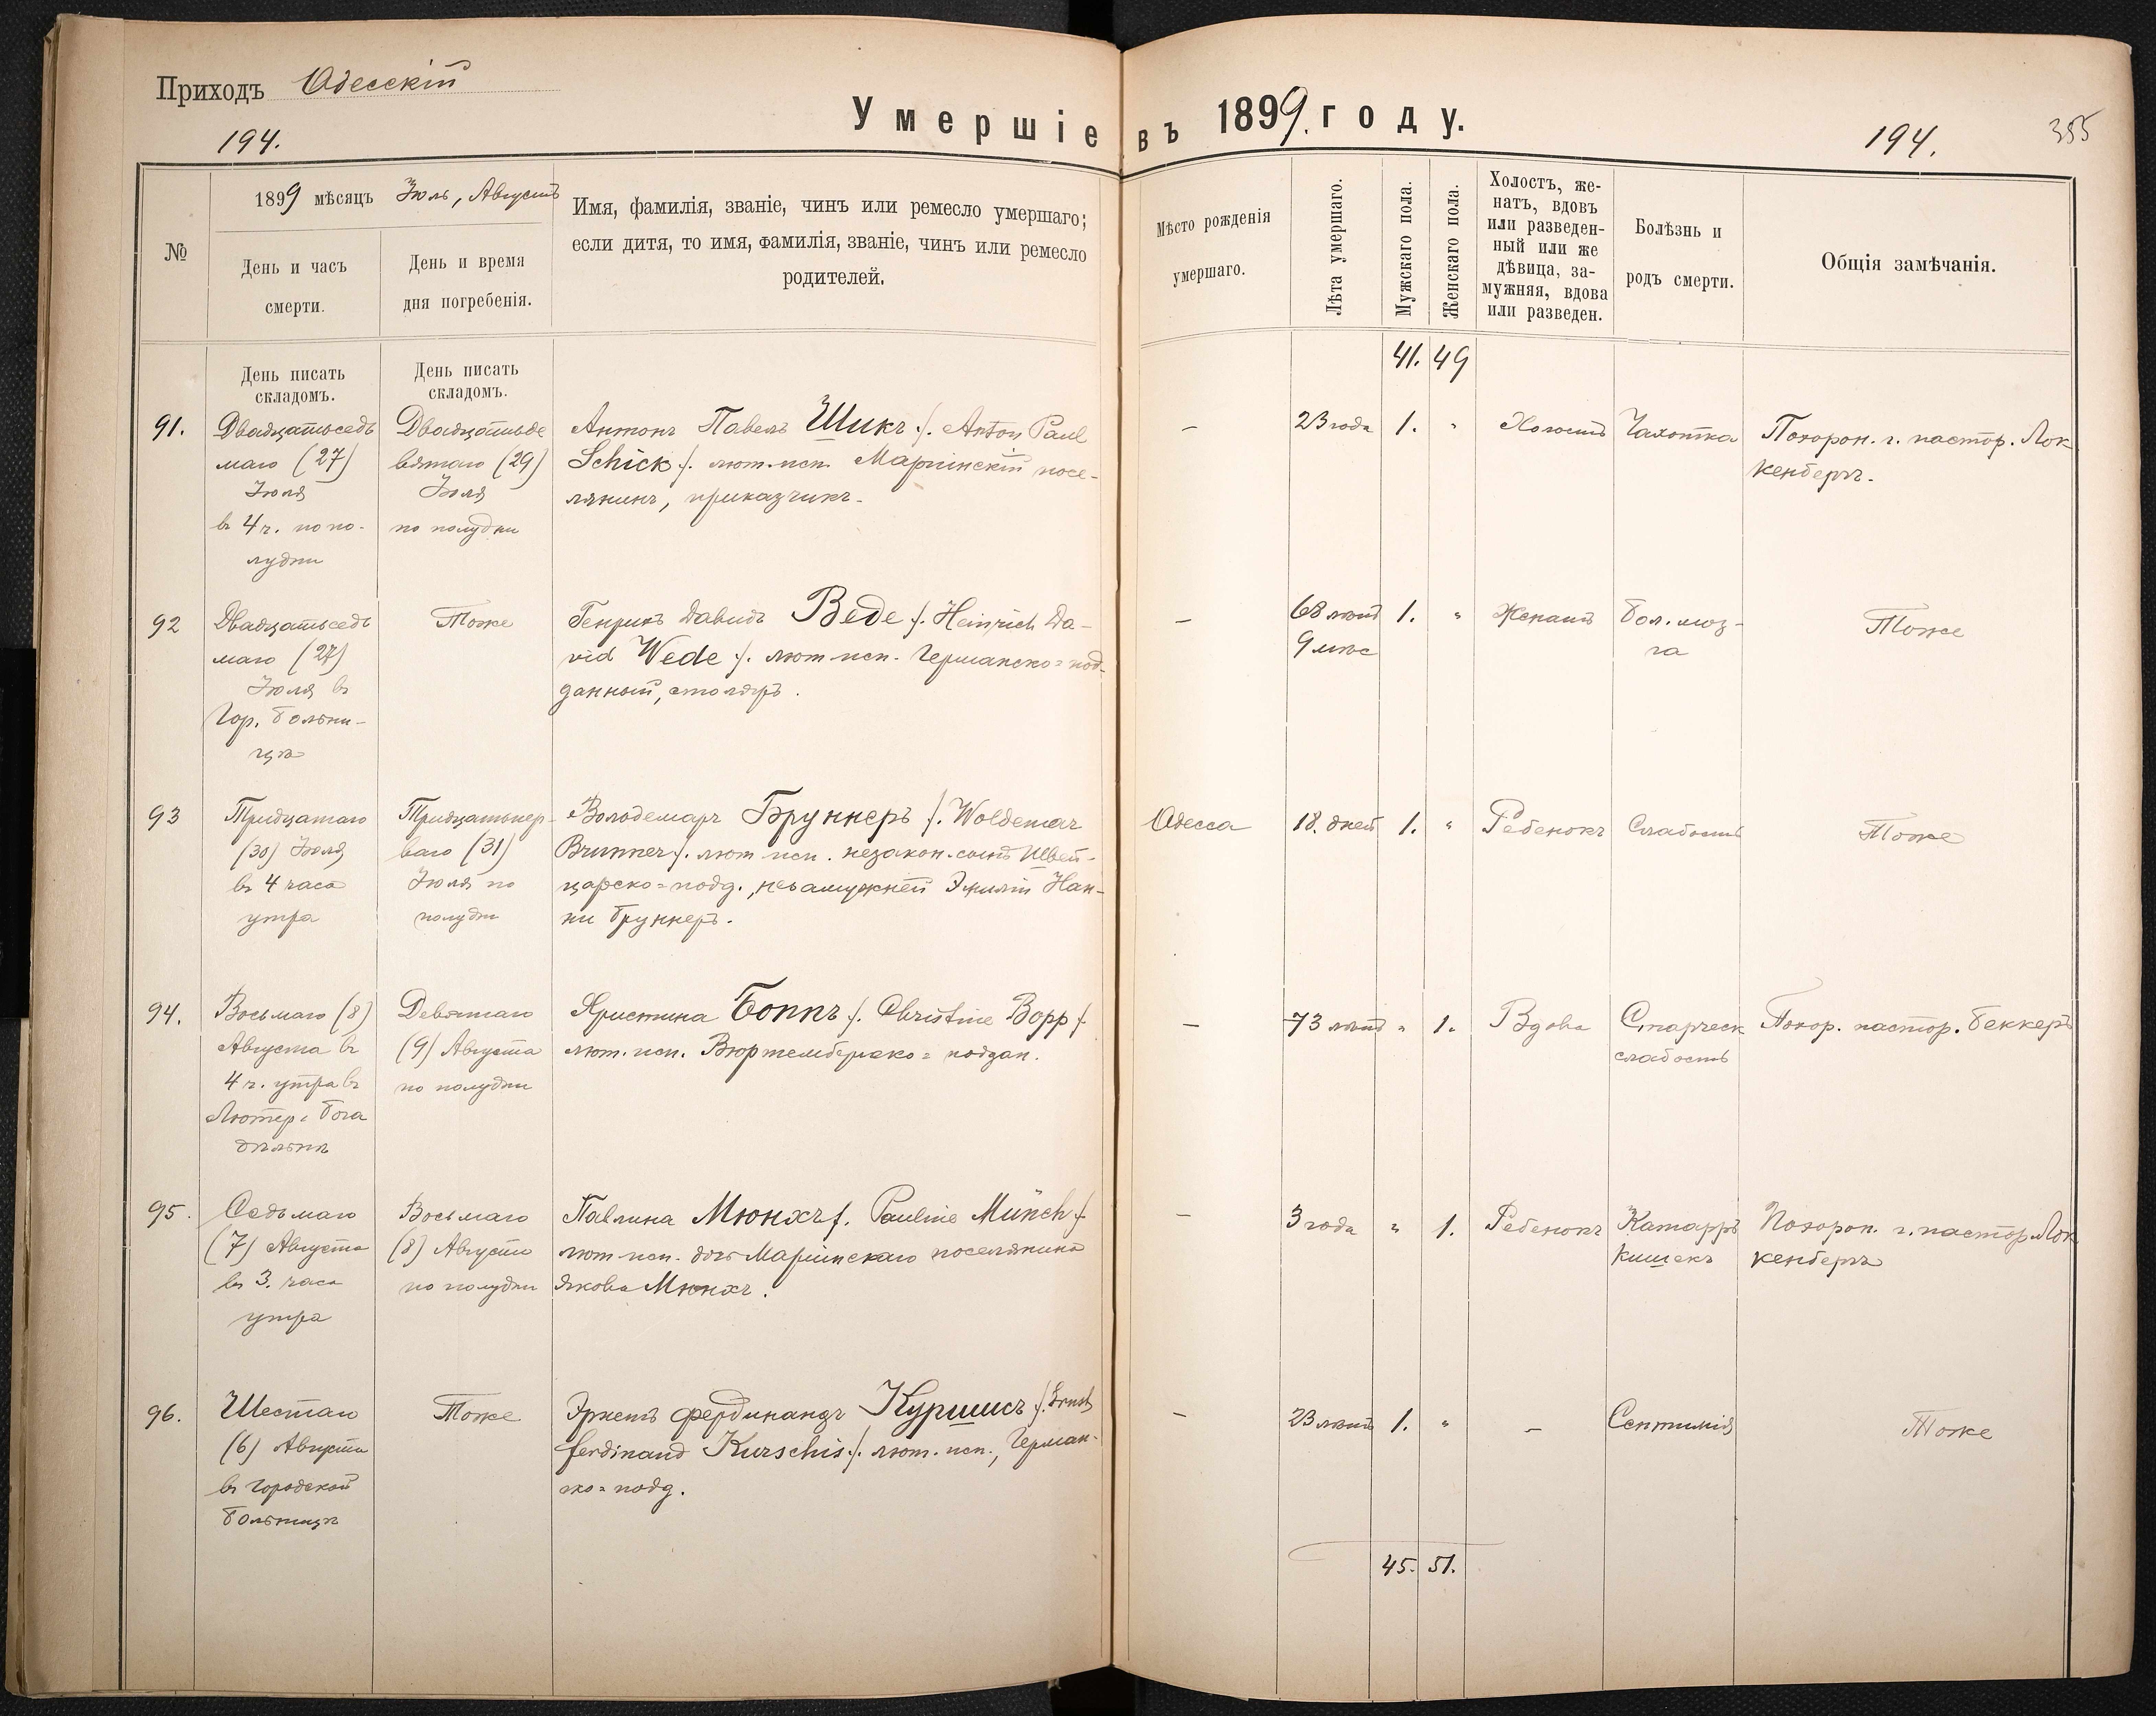 Приходъ Одесскій
194.
Умершіе въ 1899. году.
194.
355
№
1899 мѣсяцъ Іюль, Августъ
День и часъ
смерти.
День и время
дня погребенія.
Имя, фамилія, званіе, чинъ или ремесло умершаго;
если дитя, то имя, фамилія, званіе, чинъ или ремесло
родителей.
Мѣсто рожденія
умершаго.
Лѣта умершаго.
Мужскаго пола.
Женскаго пола.
Холостъ, же-
натъ, вдовъ
или разведен-
ный или же
дѣвица, за-
мужняя, вдова
или разведен.
Болѣзнь и
родъ смерти.
Общія замѣчанія.
День писать
складомъ.
День писать
складомъ.
41. 49
91.
Двадцатьседь
маго (27)
Іюля
въ 4 ч. по по-
лудни
Двадцатьде
вятаго (29)
Іюля
по полудни
Антонъ Павелъ Шикъ /. Anton Paul
Schick /. лют. исп. Маріинскій посе-
лянинъ, приказчикъ.
–
23 года
1.
"
Холостъ
Чахотка
Похорон. г. пастор. Лок
кенбергъ.
92
Двадцатьседь
маго (27)
Іюля въ
Гор. больни-
цѣ
Тоже
Генрихъ Давидъ Веде /. Heinrich Da-
vid Wede /. лют. исп. Германско=под-
данный, столяръ.
–
68 лѣтъ
9 мѣс
1.
"
Женатъ
Бол. моз-
га
Тоже
93
Тридцатаго
(30) Іюля
въ 4 часа
утра
Тридцатьпер-
ваго (31)
Іюля по
полудни
Володемаръ Бруннеръ /. Woldemar
Brunner /. лют. исп. незакон. сынъ Швей-
царско=подд., незамужней Эмиліи Нан-
ни Бруннеръ.
Одесса
18. дней
1.
"
Ребенокъ
Слабость
Тоже
94.
Восьмаго (8)
Августа въ
4 ч. утра въ
Лютер. Бога
дѣльнѣ
Девятаго
(9) Августа
по полудни
Христина Боппъ /. Christine Bopp /.
лют. исп. Вюртембергско=поддан.
–
73 лѣтъ
"
1.
Вдова
Старческ
слабость
Похор. пастор. Беккеръ
95.
Седьмаго
(7) Августа
въ 3. часа
утра
Восьмаго
(8) Августа
по полудни
Павлина Мюнхъ /. Pauline Münch /.
лют. исп. дочь Маріинскаго поселянина
Якова Мюнхъ.
–
3 года
"
1.
Ребенокъ
Катарръ
кишекъ
Похорон. г. пастор. Лок
кенбергъ
96.
Шестаго
(6) Августа
въ городской
больницѣ
Тоже
Эрнстъ Фердинандъ Куршисъ /. Ernst
Ferdinand Kurschis /. лют. исп., Герман-
ско=подд.
–
23 лѣтъ
1.
"
–
Септимія
Тоже
45. 51.